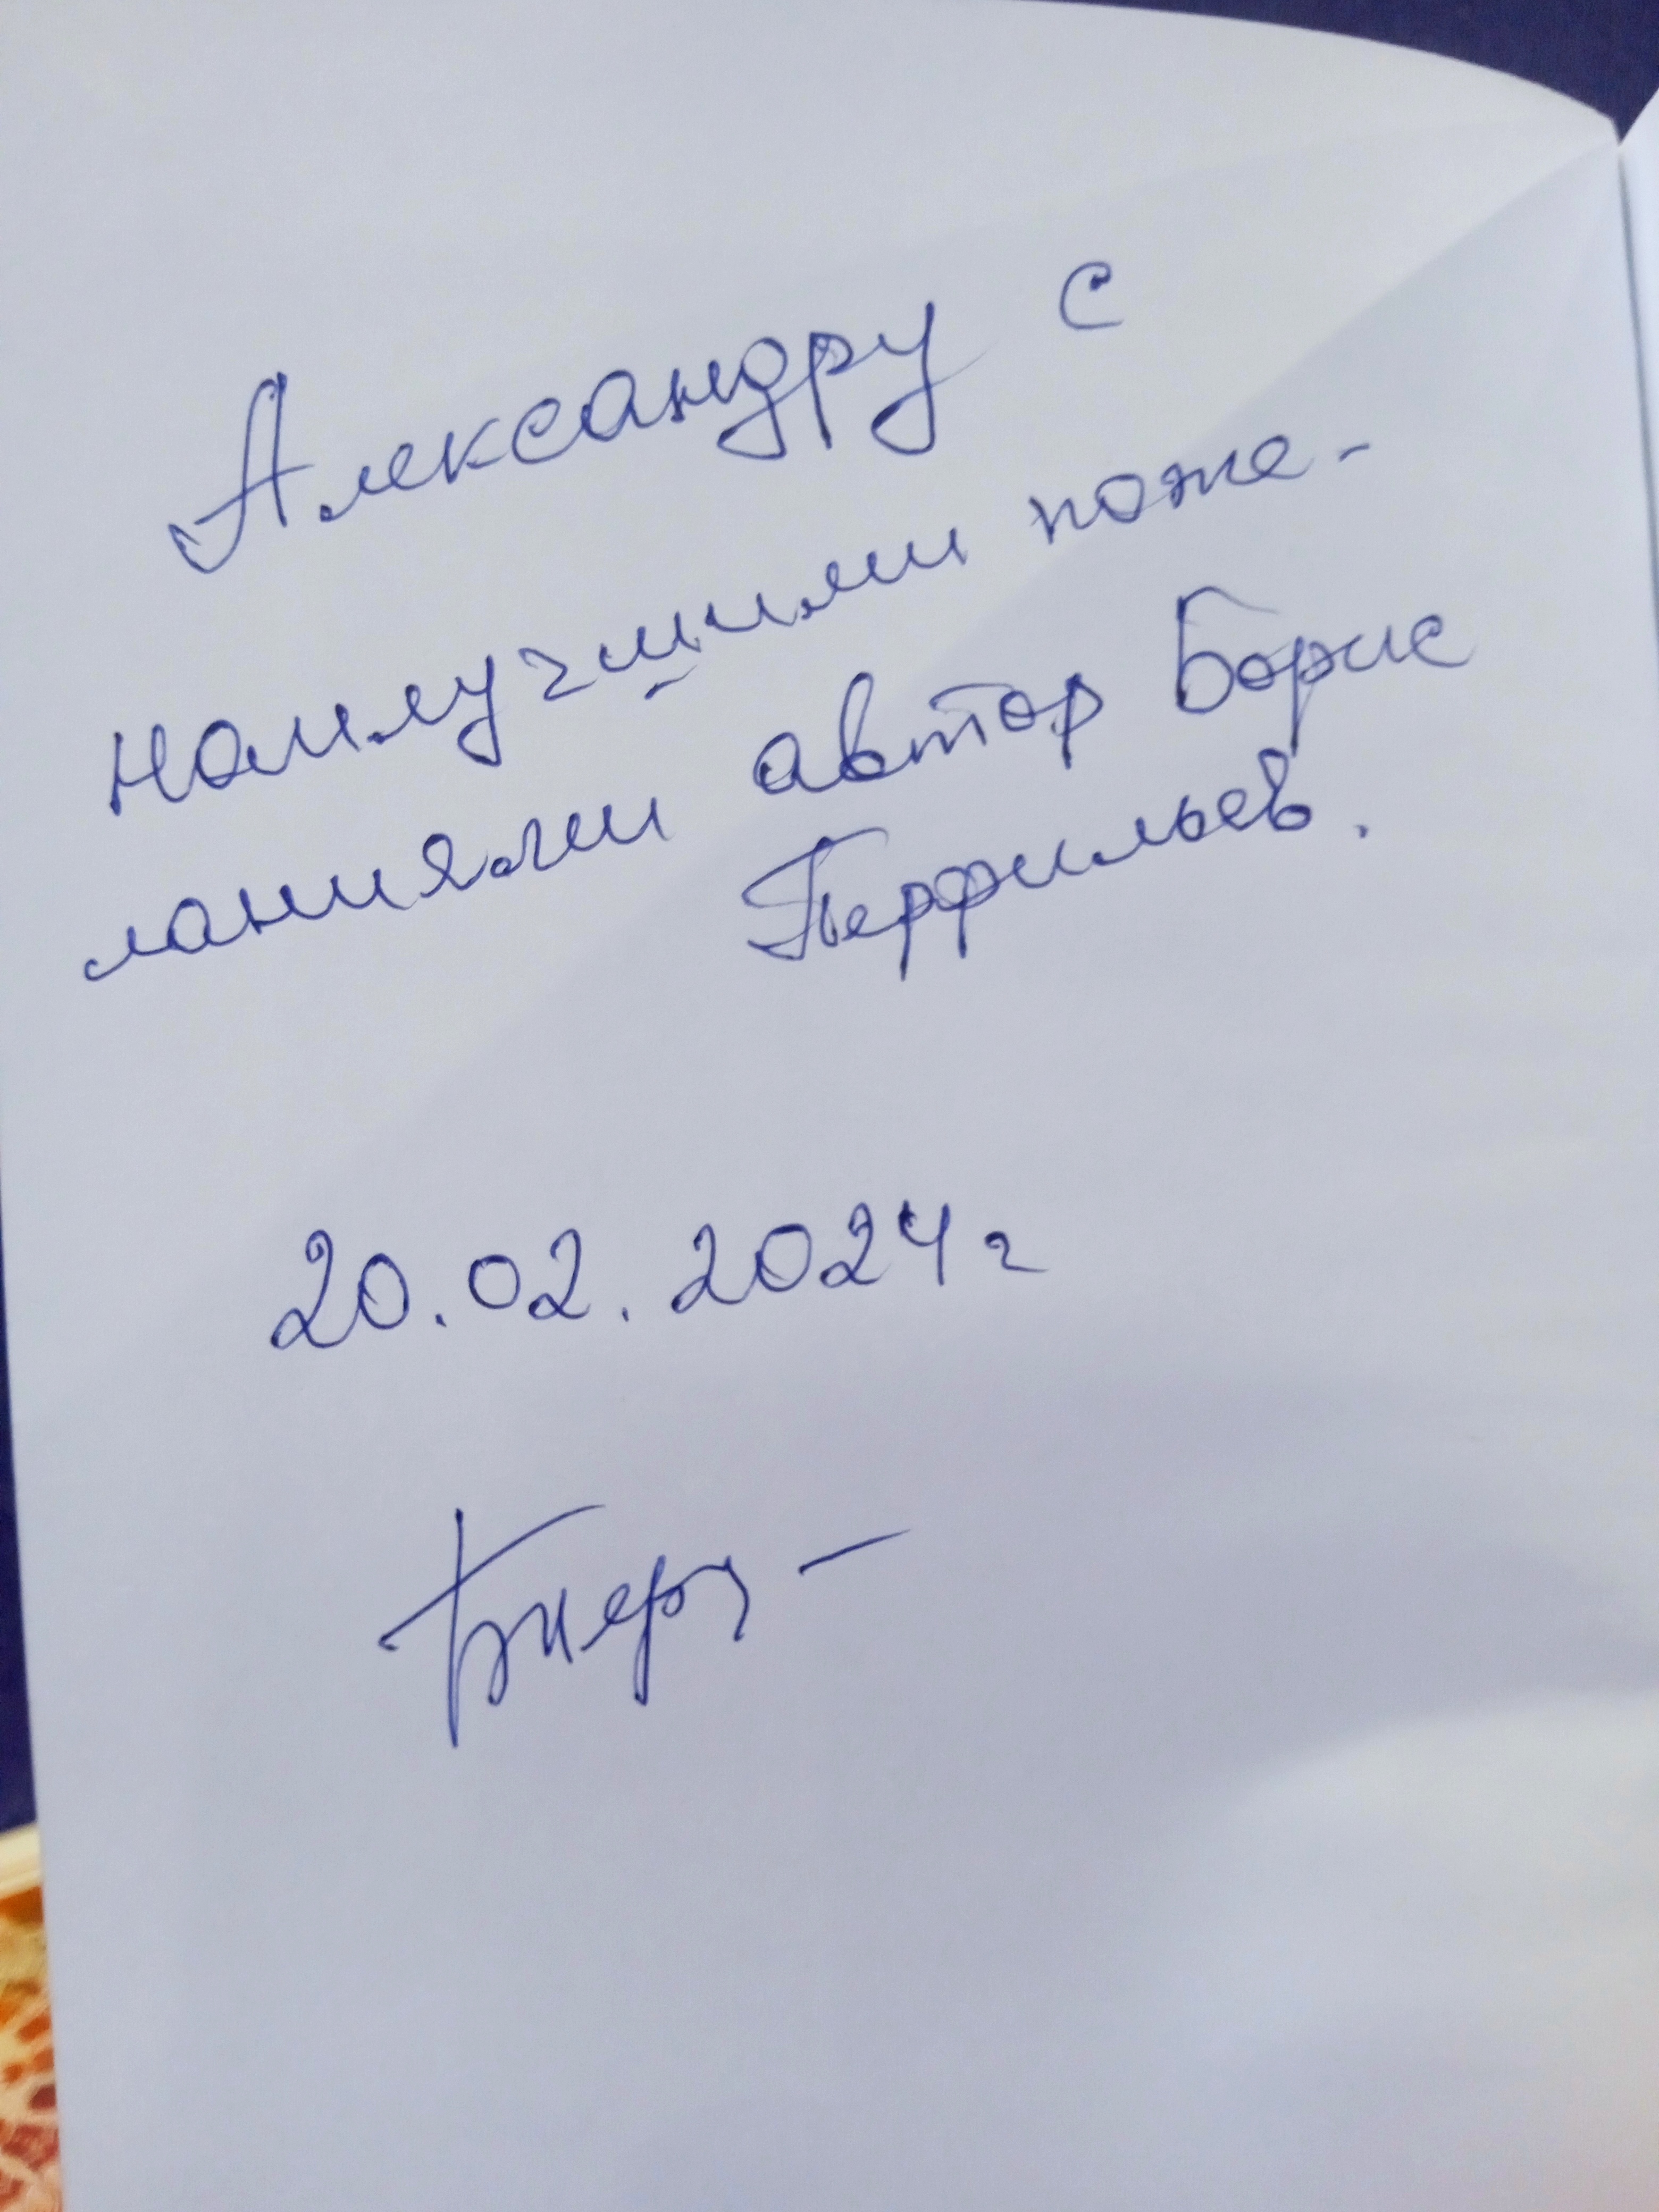 Александру с
наилучшими поже-
ланиями автор Борис
Перфильев.
20.02.2024г